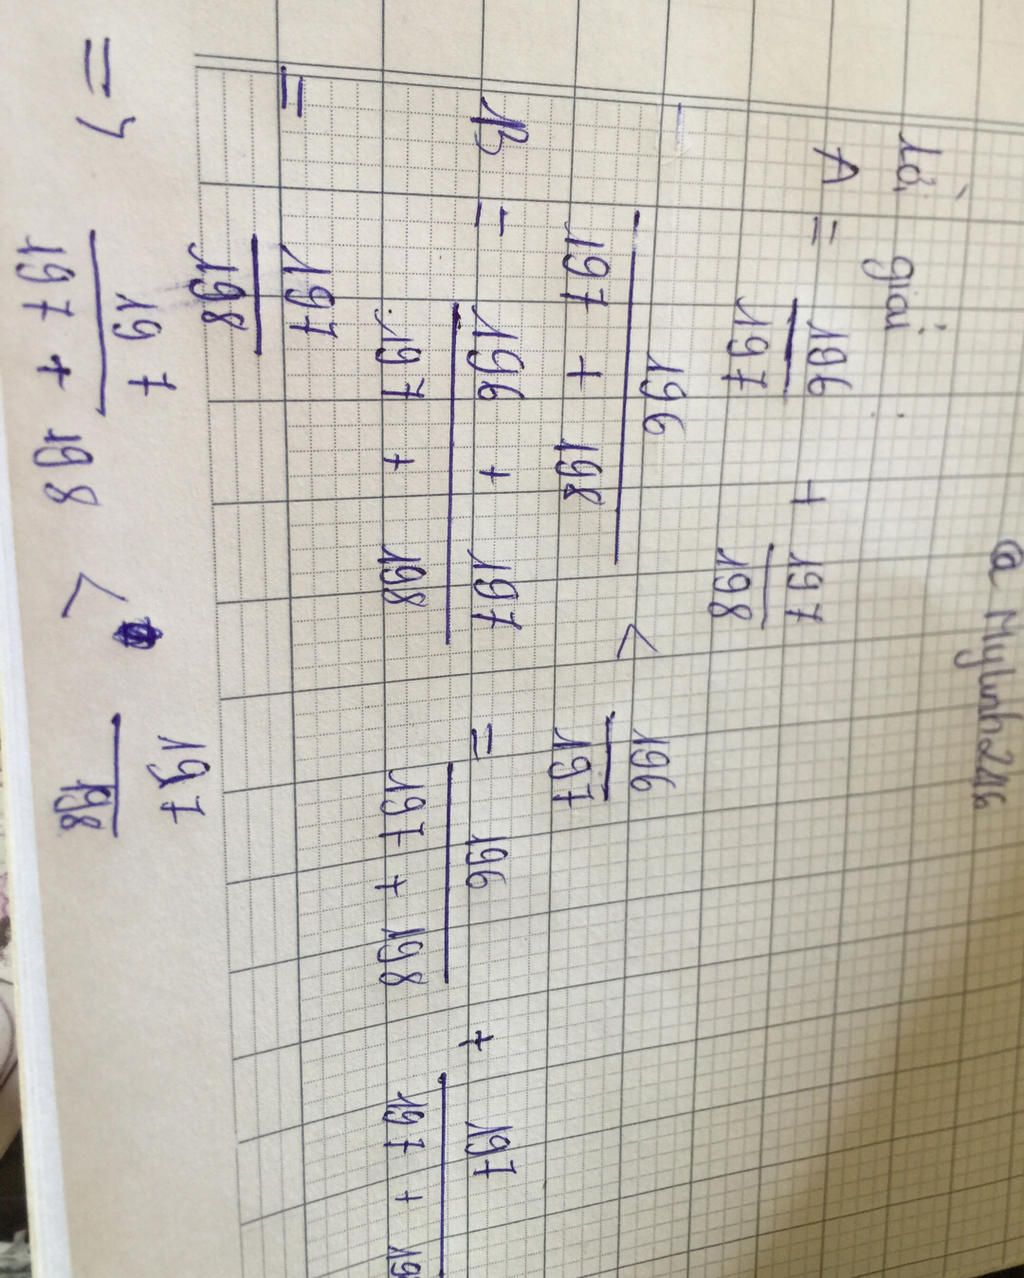 @ Mylinh2416
Lời giải
A = 196/197 + 197/198
196/197 + 198 < 196/197
B = 196 + 197/197 + 198 = 196/197 + 198 + 197/197 +
= 197/198
=> 197/197 + 198 < 197/198